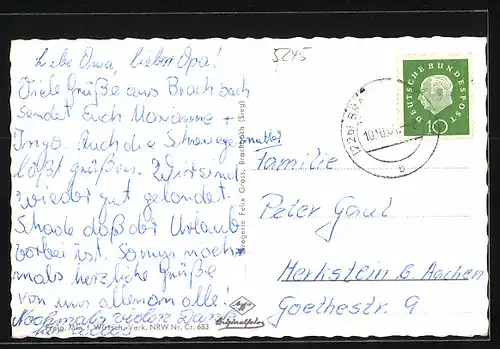 Liebe Oma, lieber Opa!
Viele Grüße aus Brachbach
sendet Euch Marianne +
Ingo. Auch die Schwiegermutter
läßt grüßen. Wir sind
wieder gut gelandet.
Schade daß der Urlaub
vorbei ist. So nun noch-
mals herzliche Grüße
von uns allen an alle!
Nochmals vielen Dank
für alles
Freig. Min. f. Wirtsch. Verk. NRW Nr. Cr. 683
Drogerie Felix Gross, Brachbach (Sieg)
Agfa
Originalfoto
5245
DEUTSCHE BUNDESPOST
10
(22b)
b
Familie
Peter Gaul
Merkstein b. Aachen
Goethestr. 9